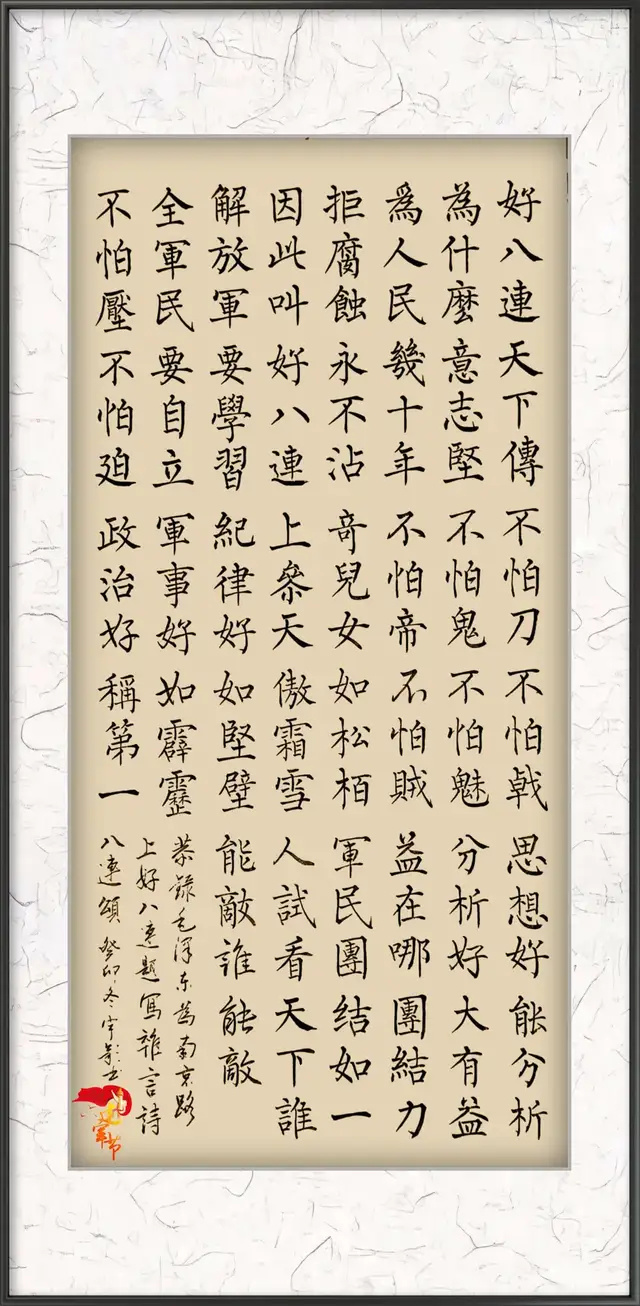 好八連天下傳不怕刀不怕戟思想好能分析
為什麼意志堅不怕鬼不怕魅分析好大有益
爲人民幾十年不怕帝不怕賊益在哪團結力
拒腐蝕永不沾奇兒女如松栢軍民團结如一
因此叫好八連上參天傲霜雪人試看天下誰
解放軍要學習紀律好如堅壁能敵誰能敵
全軍民要自立軍事好如霹靂
不怕壓不怕廹政治好稱第一
恭錄毛澤东為南京路
上好八連題寫雜言詩
八連頌 癸卯冬宇